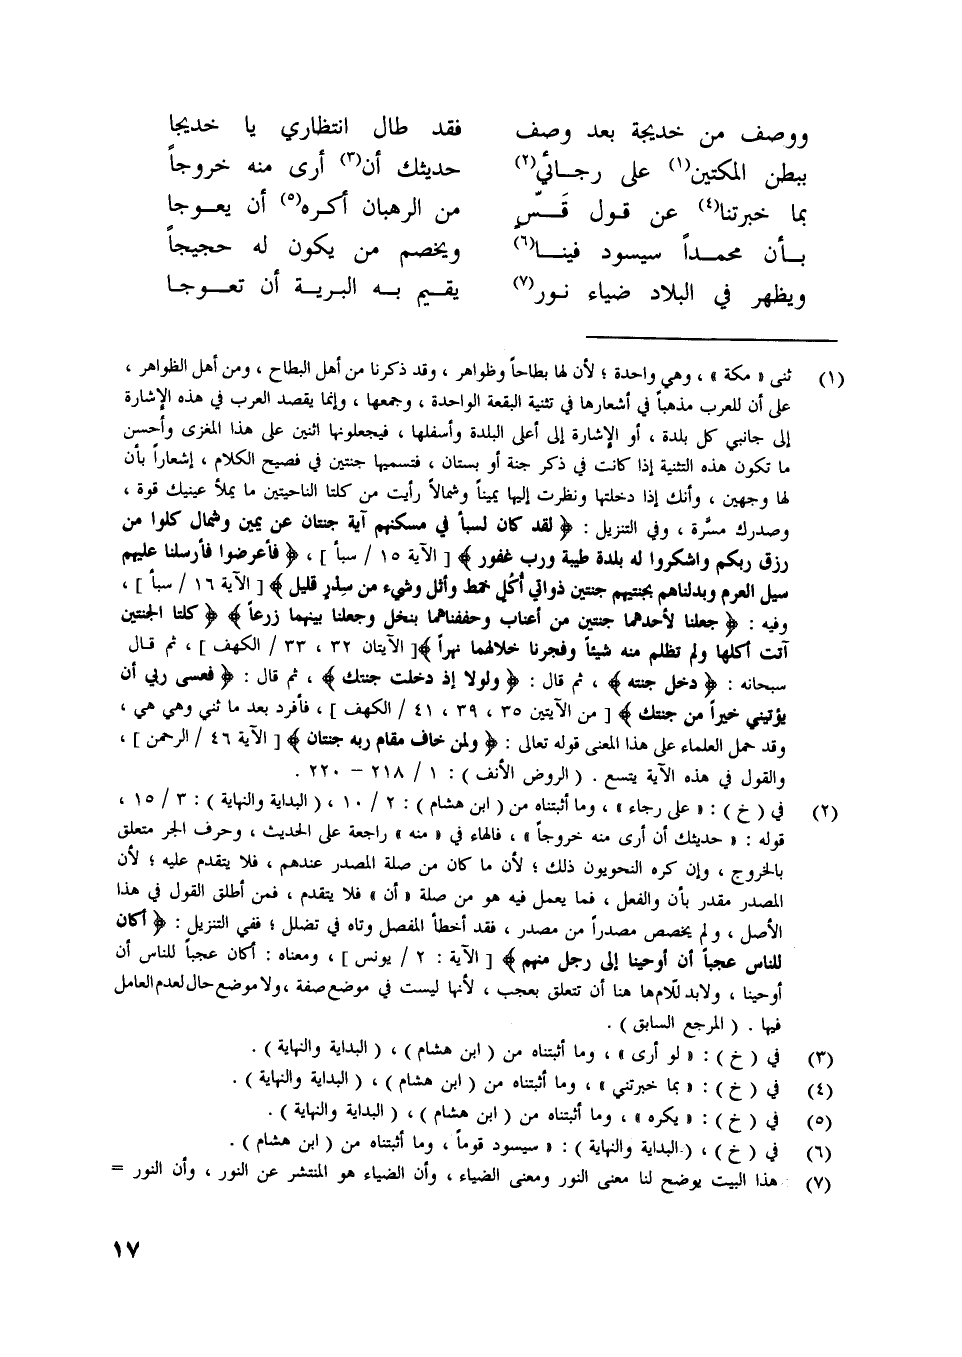 ووصف من خديجة بعد وصف فقد طال انتظاري يا خديجا
ببطن المكتين(١) على رجـائي(٢) حديثك أن(٣) أرى منه خروجاً
بما خبرتنا(٤) عن قـول قَـسٍّ من الرهبان أكـره(٥) أن يعـوجا
بـأن محمـداً سيسود فينـا(٦) ويخصم من يكون له حجيجاً
ويظهر في البلاد ضياء نـور(٧) يقيـم بـه البريـة أن تعـوجـا
(١) ثنى « مكة » ، وهي واحدة ؛ لأن لها بطاحاً وظواهر ، وقد ذكرنا من أهل البطاح ، ومن أهل الظواهر ،
على أن للعرب مذهباً في أشعارها في تثنية البقعة الواحدة ، وجمعها ، وإنما يقصد العرب في هذه الإشارة
إلى جانبي كل بلدة ، أو الإشارة إلى أعلى البلدة وأسفلها ، فيجعلونها اثنين على هذا المغزى وأحسن
ما تكون هذه التثنية إذا كانت في ذكر جنة أو بستان ، فتسميها جنتين في فصيح الكلام ، إشعاراً بأن
لها وجهين ، وأنك إذا دخلتها ونظرت إليها يميناً وشمالاً رأيت من كلتا الناحيتين ما يملأ عينيك قوة ،
وصدرك مسرَّة ، وفي التنزيل : ﴿ لقد كان لسبأ في مسكنهم آية جنتان عن يمين وشمال كلوا من
رزق ربكم واشكروا له بلدة طيبة ورب غفور ﴾ [ الآية ١٥ / سبأ ] ، ﴿ فأعرضوا فأرسلنا عليهم
سيل العرم وبدلناهم بجنتيهم جنتين ذواتي أُكُلٍ خمط وأثل وشيء من سِدْرٍ قليل ﴾ [ الآية ١٦ / سبأ ] ،
وفيه : ﴿ جعلنا لأحدهما جنتين من أعناب وحففناهما بنخل وجعلنا بينهما زرعاً ﴾ ﴿ كلتا الجنتين
آتت أكلها ولم تظلم منه شيئاً وفجرنا خلالهما نهراً ﴾[ الآيتان ٣٢ ، ٣٣ / الكهف ] ، ثم قـال
سبحانه : ﴿ دخل جنته ﴾ ، ثم قال : ﴿ ولولا إذ دخلت جنتك ﴾ ، ثم قال : ﴿ فعسى ربي أن
يؤتيني خيراً من جنتك ﴾ [ من الآيتين ٣٥ ، ٣٩ ، ٤١ / الكهف ] ، فأفرد بعد ما ثني وهي هي ،
وقد حمل العلماء على هذا المعنى قوله تعالى : ﴿ ولمن خاف مقام ربه جنتان ﴾ [ الآية ٤٦ / الرحمن ] ،
والقول في هذه الآية يتسع . ( الروض الأنف ) : ١ / ٢١٨ – ٢٢٠ .
(٢) في ( خ ) : « على رجاء » ، وما أثبتناه من ( ابن هشام ) : ٢ / ١٠ ، ( البداية والنهاية ) : ٣ / ١٥ ،
قوله : « حديثك أن أرى منه خروجاً » ، فالهاء في « منه » راجعة على الحديث ، وحرف الجر متعلق
بالخروج ، وإن كره النحويون ذلك ؛ لأن ما كان من صلة المصدر عندهم ، فلا يتقدم عليه ؛ لأن
المصدر مقدر بأن والفعل ، فما يعمل فيه هو من صلة « أن » فلا يتقدم ، فمن أطلق القول في هذا
الأصل ، ولم يخصص مصدراً من مصدر ، فقد أخطأ المفصل وتاه في تضلل ؛ ففي التنزيل : ﴿ أكان
للناس عجباً أن أوحينا إلى رجل منهم ﴾ [ الآية : ٢ / يونس ] ، ومعناه : أكان عجباً للناس أن
أوحينا ، ولابد للّامها هنا أن تتعلق بعجب ، لأنها ليست في موضع صفة ، ولا موضع حال لعدم العامل
فيها . ( المرجع السابق ) .
(٣) في ( خ ) : « لو أرى » ، وما أثبتناه من ( ابن هشام ) ، ( البداية والنهاية ) .
(٤) في ( خ ) : « بما خبرتني » ، وما أثبتناه من ( ابن هشام ) ، ( البداية والنهاية ) .
(٥) في ( خ ) : « يكره » ، وما أثبتناه من ( ابن هشام ) ، ( البداية والنهاية ) .
(٦) في ( خ ) ، ( البداية والنهاية ) : « سيسود قوماً ، وما أثبتناه من ( ابن هشام ) .
(٧) هذا البيت يوضح لنا معنى النور ومعنى الضياء ، وأن الضياء هو المنتشر عن النور ، وأن النور =
١٧